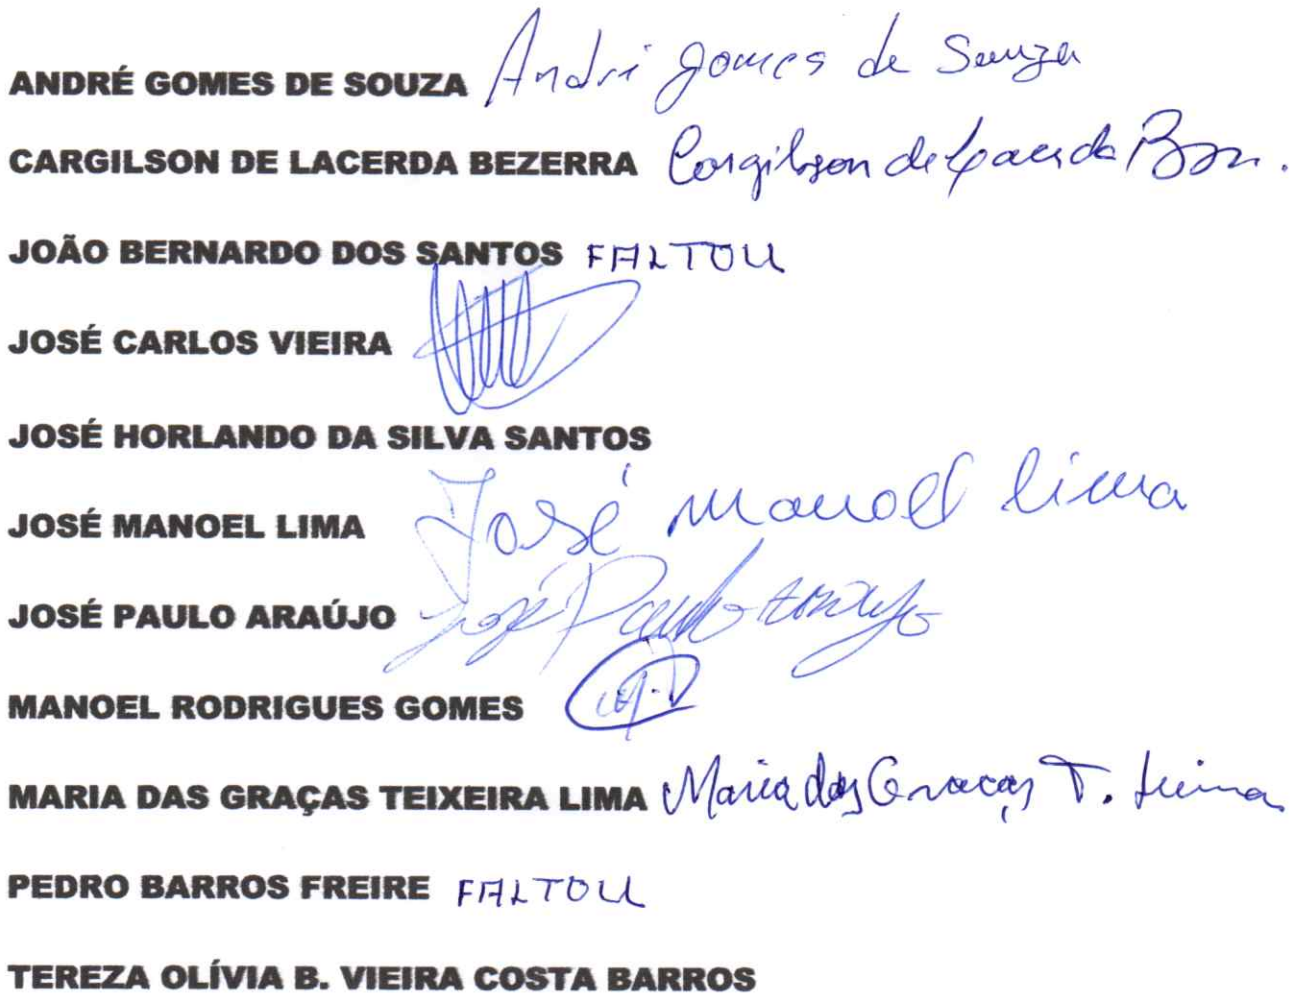 ANDRÉ GOMES DE SOUZA André Gomes de Souza
CARGILSON DE LACERDA BEZERRA Cargilson de Lacerda
JOÃO BERNARDO DOS SANTOS FALTOU
JOSÉ CARLOS VIEIRA
JOSÉ HORLANDO DA SILVA SANTOS
JOSÉ MANOEL LIMA José Manoel Lima
JOSÉ PAULO ARAÚJO José Paulo Araujo
MANOEL RODRIGUES GOMES
MARIA DAS GRAÇAS TEIXEIRA LIMA Maria das Graças T. Lima
PEDRO BARROS FREIRE FALTOU
TEREZA OLÍVIA B. VIEIRA COSTA BARROS